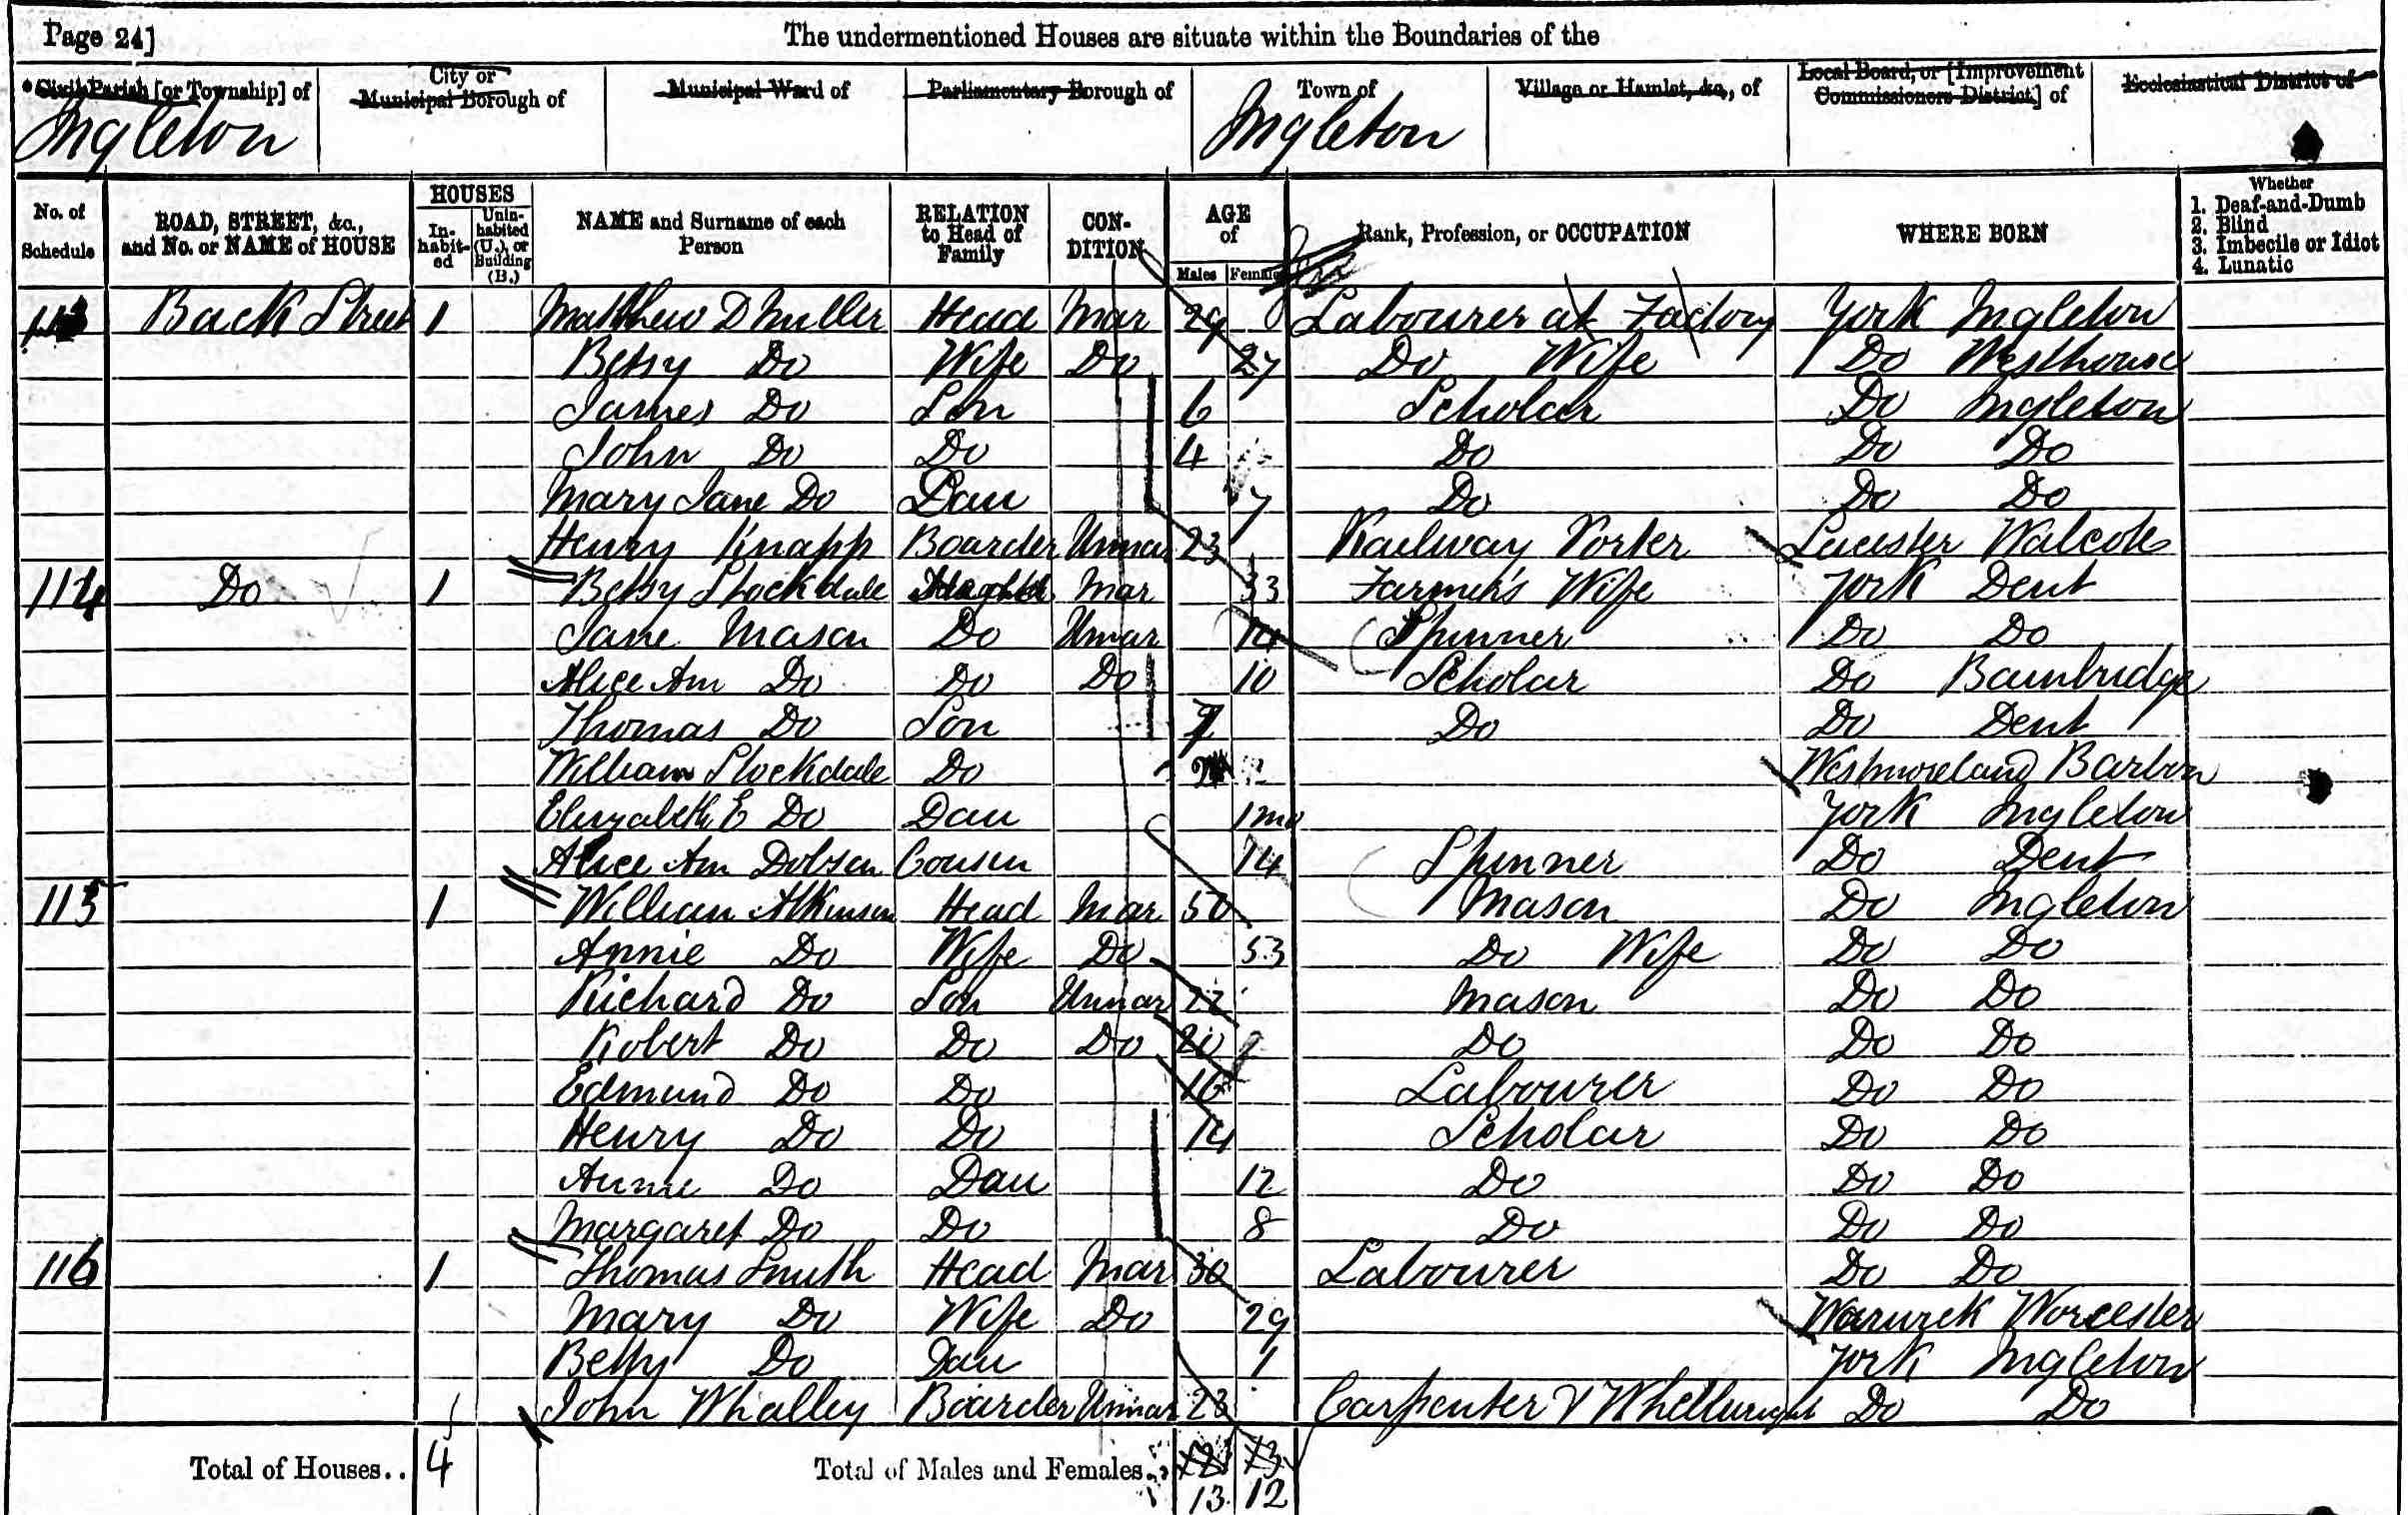 Page 24]
The undermentioned Houses are situate within the Boundaries of the
Civil Parish [or Township] of
City or Municipal Borough of
Municipal Ward of
Parliamentary Borough of
Town of
Village or Hamlet, &c., of
Local Board, or [Improvement Commissioners District] of
Ecclesiastical District of
Ingleton Ingleton
No. of Schedule
ROAD, STREET, &c., and No. or NAME of HOUSE
HOUSES
In-habit-ed
Unin-habited (U.), or Building (B.)
NAME and Surname of each Person
RELATION to Head of Family
CON-DITION
AGE of
Males Females
Rank, Profession, or OCCUPATION
WHERE BORN
Whether
1. Deaf-and-Dumb
2. Blind
3. Imbecile or Idiot
4. Lunatic
113 Back Street 1 Matthew D Miller Head Mar 29 Labourer at Factory York Ingleton
Betsy Do Wife Do 27 Do Wife Do Westhouse
James Do Son 6 Scholar Do Ingleton
John Do Do 4 Do Do Do
Mary Jane Do Dau 7 Do Do Do
Henry Knapp Boarder Unmar 23 Railway Porter Leicester Walcote
114 Do 1 Betsy Stockdale Mar 33 Farmer's Wife York Dent
Jane Mason Do Unmar 14 Spinner Do Do
Alice Ann Do Do Do 10 Scholar Do Bainbridge
Thomas Do Son Do Do Dent
William Stockdale Do Westmoreland Barbon
Elizabeth E Do Dau 1 mo York Ingleton
Alice Ann Dobson Cousin 14 Spinner Do Dent
115 1 William Atkinson Head Mar 50 Mason Do Ingleton
Annie Do Wife Do 53 Do Wife Do Do
Richard Do Son Unmar 22 Mason Do Do
Robert Do Do Do 20 Do Do Do
Edmund Do Do 16 Labourer Do Do
Henry Do Do 14 Scholar Do Do
Annie Do Dau 12 Do Do Do
Margaret Do Do 8 Do Do Do
116 1 Thomas Smith Head Mar 30 Labourer Do Do
Mary Do Wife Do 29 Warwick Worcester
Betty Do Dau 1 York Ingleton
John Whalley Boarder Unmar 23 Carpenter & Whellwright Do Do
Total of Houses.. 4
Total of Males and Females..
13 12